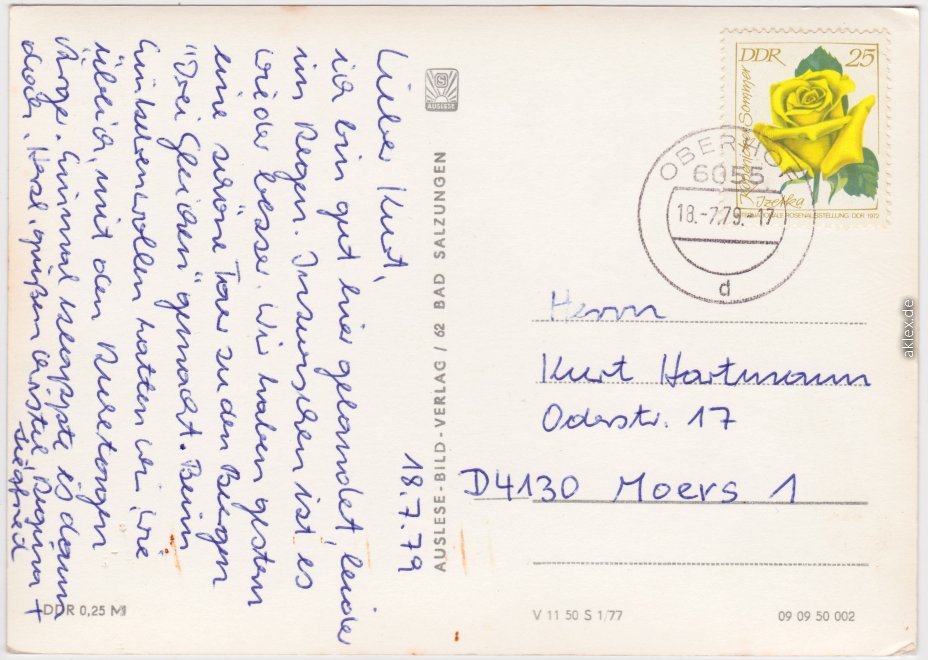 18.7.79
Lieber Kurt,
ich bin gut hier gelandet, leider
im Regen. Inzwischen ist es
wieder besser. Wir haben gestern
eine schöne Tour zu den Burgen
"Drei Gleichen" gemacht. Beim
hatten wir, wie
üblich, mit den
Ärger. Einmal klappte es dann
doch. Herzl. grüßen Regina +
Siegfried
AUSLESE
AUSLESE-BILD-VERLAG / 62 BAD SALZUNGEN
DDR 25
Izetka
INTERNATIONALE ROSENAUSSTELLUNG DDR 1972
OBERHOF
6055
18.-7.79.-17
d
Herrn
Kurt Hartmann
Oderstr. 17
D4130 Moers 1
DDR 0,25 M
V 11 50 S 1/77
09 09 50 002
aklex.de